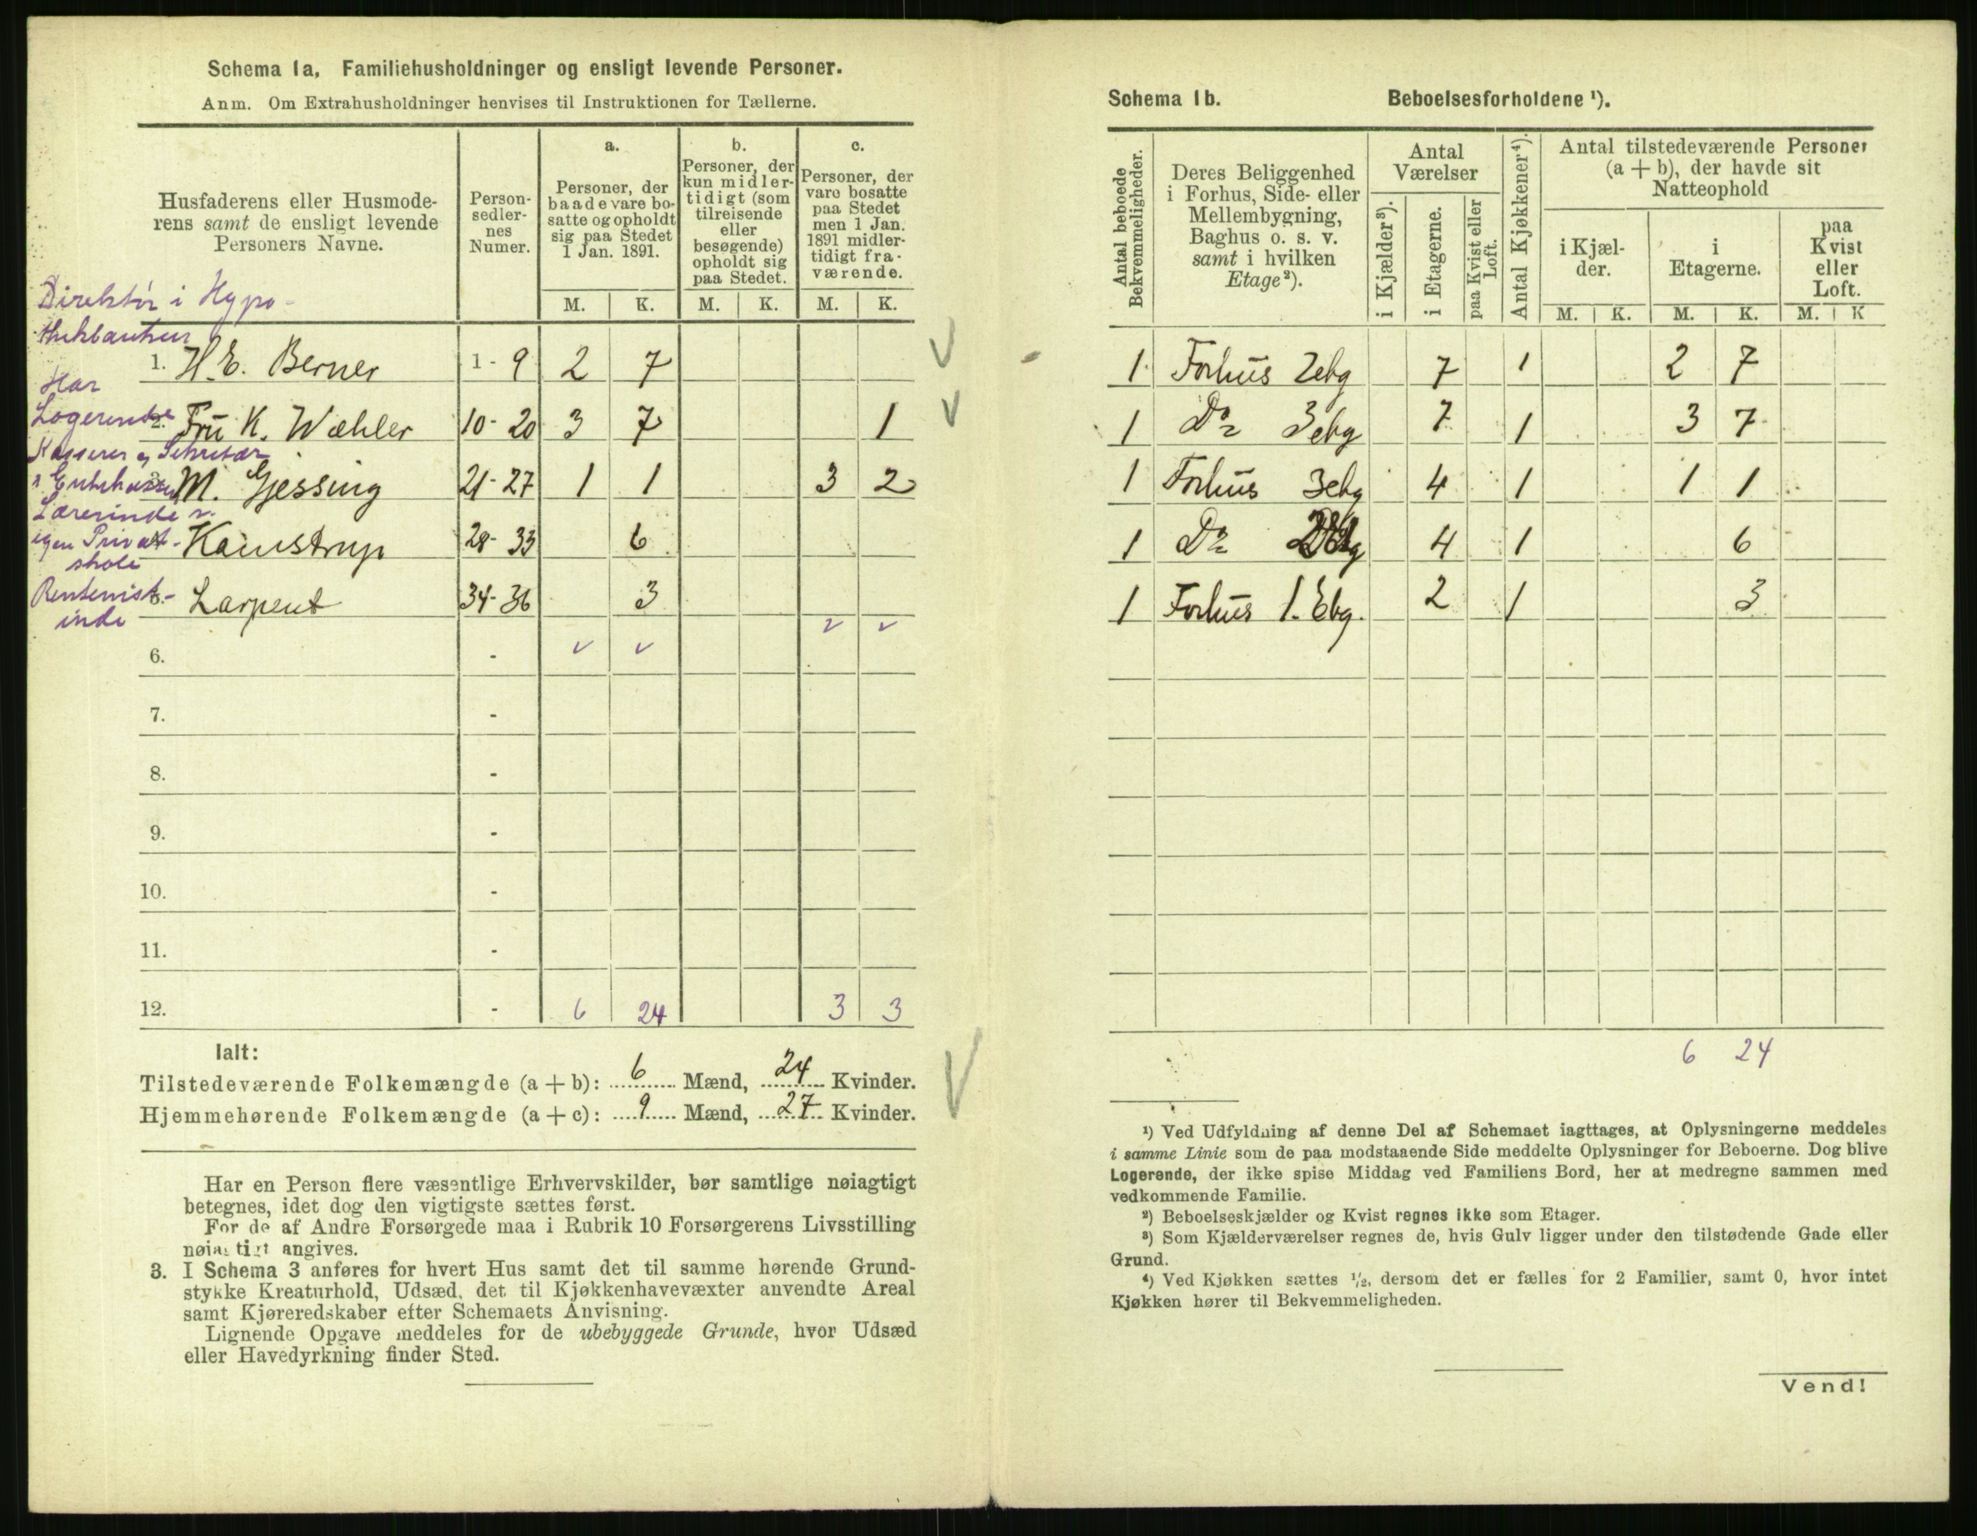 Schema 1a. Familiehusholdninger og ensligt levende Personer.
Anm. Om Extrahusholdninger henvises til Instruktionen for Tællerne.
Husfaderens eller Husmode-
rens samt de ensligt levende
Personers Navne.
Person-
sedler-
nes
Numer.
a.
Personer, der
baade vare bo-
satte og opholdt
sig paa Stedet
1 Jan. 1891.
b.
Personer, der
kun midler-
tidigt (som
tilreisende
eller
besøgende)
opholdt sig
paa Stedet.
c.
Personer, der
vare bosatte
paa Stedet
men 1 Jan.
1891 midler-
tidigt fra-
værende.
M. K. M. K. M. K.
Direktör i Hypo-
thekbanken
1. H. E. Berner 1 - 9 2 7
Har
Logerende
2. Fru K. Wæhler 10 - 20 3 7 1
Kasserer og Sekretær
M. Gjessing 21 - 27 1 1 3 2
Lærerinde v.
egen Privat-
skole
Kamstrup 28 - 33 6
Rentenist-
inde
5. Larpent 34 - 36 3
6. -
7. -
8. -
9. -
10. -
11. -
12. - 6 24 3 3
Ialt:
Tilstedeværende Folkemængde (a + b): 6 Mænd, 24 Kvinder.
Hjemmehørende Folkemængde (a + c): 9 Mænd, 27 Kvinder.
Har en Person flere væsentlige Erhvervskilder, bør samtlige nøiagtigt
betegnes, idet dog den vigtigste sættes først.
For de af Andre Forsørgede maa i Rubrik 10 Forsørgerens Livsstilling
nøiagtigt angives.
3. I Schema 3 anføres for hvert Hus samt det til samme hørende Grund-
stykke Kreaturhold, Udsæd, det til Kjøkkenhavevæxter anvendte Areal
samt Kjøreredskaber efter Schemaets Anvisning.
Lignende Opgave meddeles for de ubebyggede Grunde, hvor Udsæd
eller Havedyrkning finder Sted.
Schema 1b. Beboelsesforholdene ¹).
Antal beboede
Bekvemmeligheder.
Deres Beliggenhed
i Forhus, Side- eller
Mellembygning,
Baghus o. s. v.
samt i hvilken
Etage ²).
Antal
Værelser
i Kjælder ³).
i Etagerne.
paa Kvist eller
Loft.
Antal Kjøkkener ⁴).
Antal tilstedeværende Personer
(a + b), der havde sit
Natteophold
i Kjæl-
der.
i
Etagerne.
paa
Kvist
eller
Loft.
M. K. M. K. M. K
1 Forhus 2 etg 7 1 2 7
1 Do 3 etg 7 1 3 7
1 Forhus 3 etg 4 1 1 1
1 Do 4 1 6
1 Forhus 1. Etg. 2 1 3
6 24
¹) Ved Udfyldning af denne Del af Schemaet iagttages, at Oplysningerne meddeles
i samme Linie som de paa modstaaende Side meddelte Oplysninger for Beboerne. Dog blive
Logerende, der ikke spise Middag ved Familiens Bord, her at medregne sammen med
vedkommende Familie.
²) Beboelseskjælder og Kvist regnes ikke som Etager.
³) Som Kjælderværelser regnes de, hvis Gulv ligger under den tilstødende Gade eller
Grund.
⁴) Ved Kjøkken sættes ½, dersom det er fælles for 2 Familier, samt 0, hvor intet
Kjøkken hører til Bekvemmeligheden.
Vend!